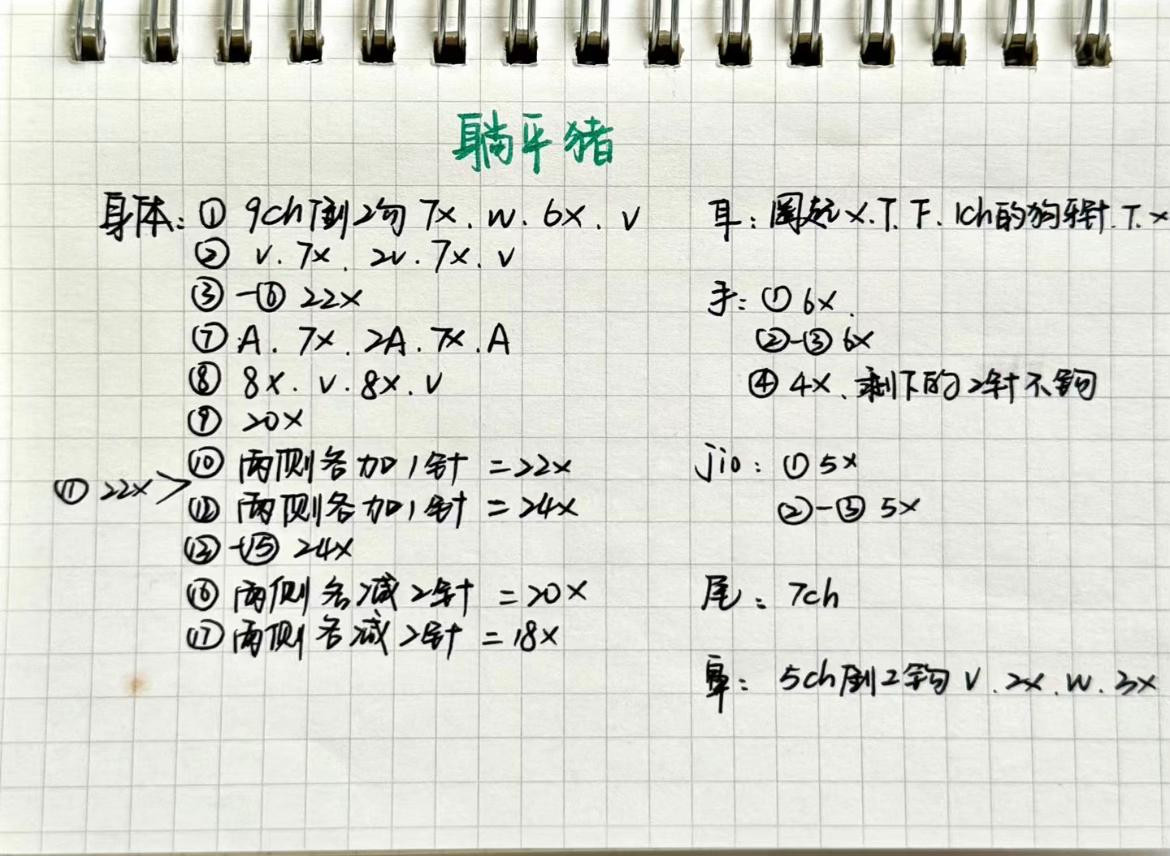 躺平猪
身体: ① 9ch倒2勾 7x. w. 6x. v
② v. 7x. 2v. 7x. v
③-⑥ 22x
⑦ A. 7x. 2A. 7x. A
⑧ 8x. v. 8x. v
⑨ 20x
⑩ 两侧各加1针 =22x
⑪ 22x >
⑫ 两侧各加1针 =24x
⑬-⑮ 24x
⑯ 两侧各减2针 =20x
⑰ 两侧各减2针 =18x
耳: 圈起 x. T. F. 1ch的狗牙针. T. x
手: ① 6x.
②-③ 6x
④ 4x. 剩下的2针不钩
jio: ① 5x
②-③ 5x
尾: 7ch
鼻: 5ch倒2钩 v. 2x. w. 3x